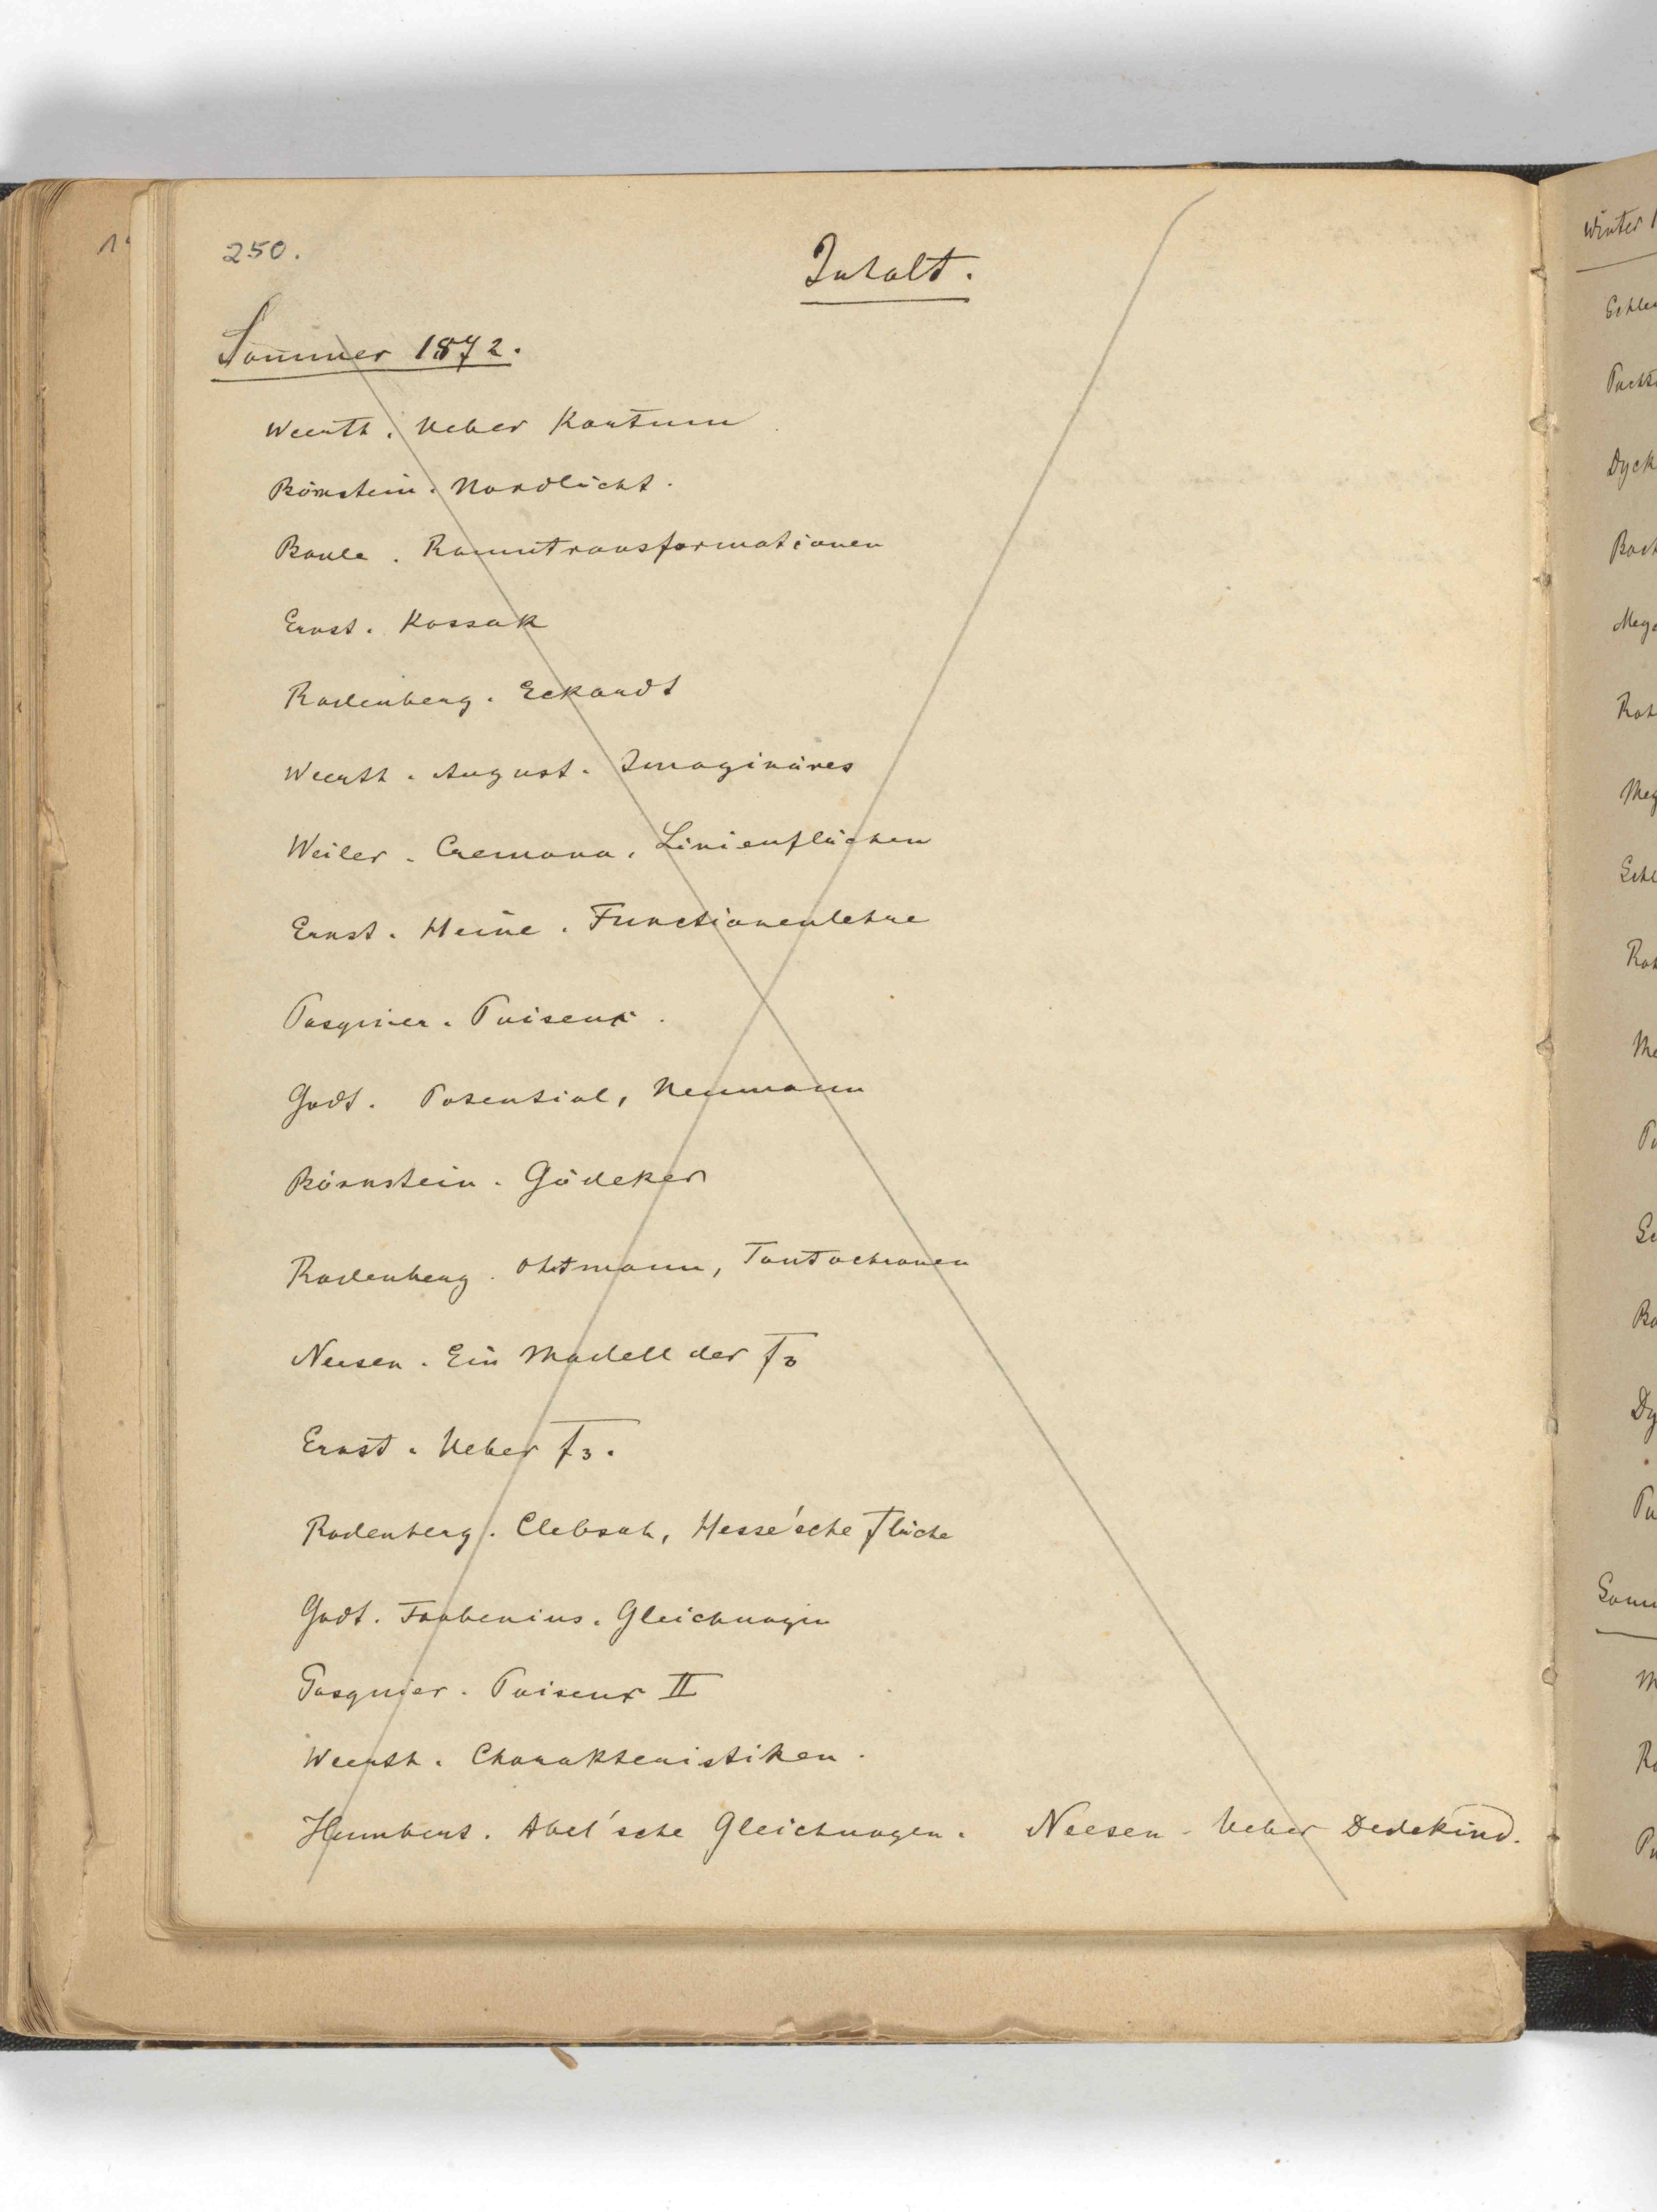 250.
Inhalt.
Sommer 1872.
Weerth. Ueber Kartum
Börnstein. Nordlicht.
Baule. Raumtransformationen
Ernst. Kossak
Rodenberg. Eckardt
Weerth. August. Imaginäres
Weiler. Cremona, Linienflächen
Ernst. Heine. Functionenlehre
Pasquier. Puiseux.
Godt. Potential, Neumann
Börnstein. Gödeker
Rodenberg. Ohtmann, Tautochronen
Neesen. Ein Modell der F3
Ernst. Ueber F3.
Rodenberg. Clebsch, Hesse'sche Fläche
Godt. Frobenius. Gleichungen
Pasquier. Puiseux II
Weerth. Charakteristiken.
Humbert. Abel'sche Gleichungen. Neesen - Ueber Dedekind.
Winter 1
Dyck